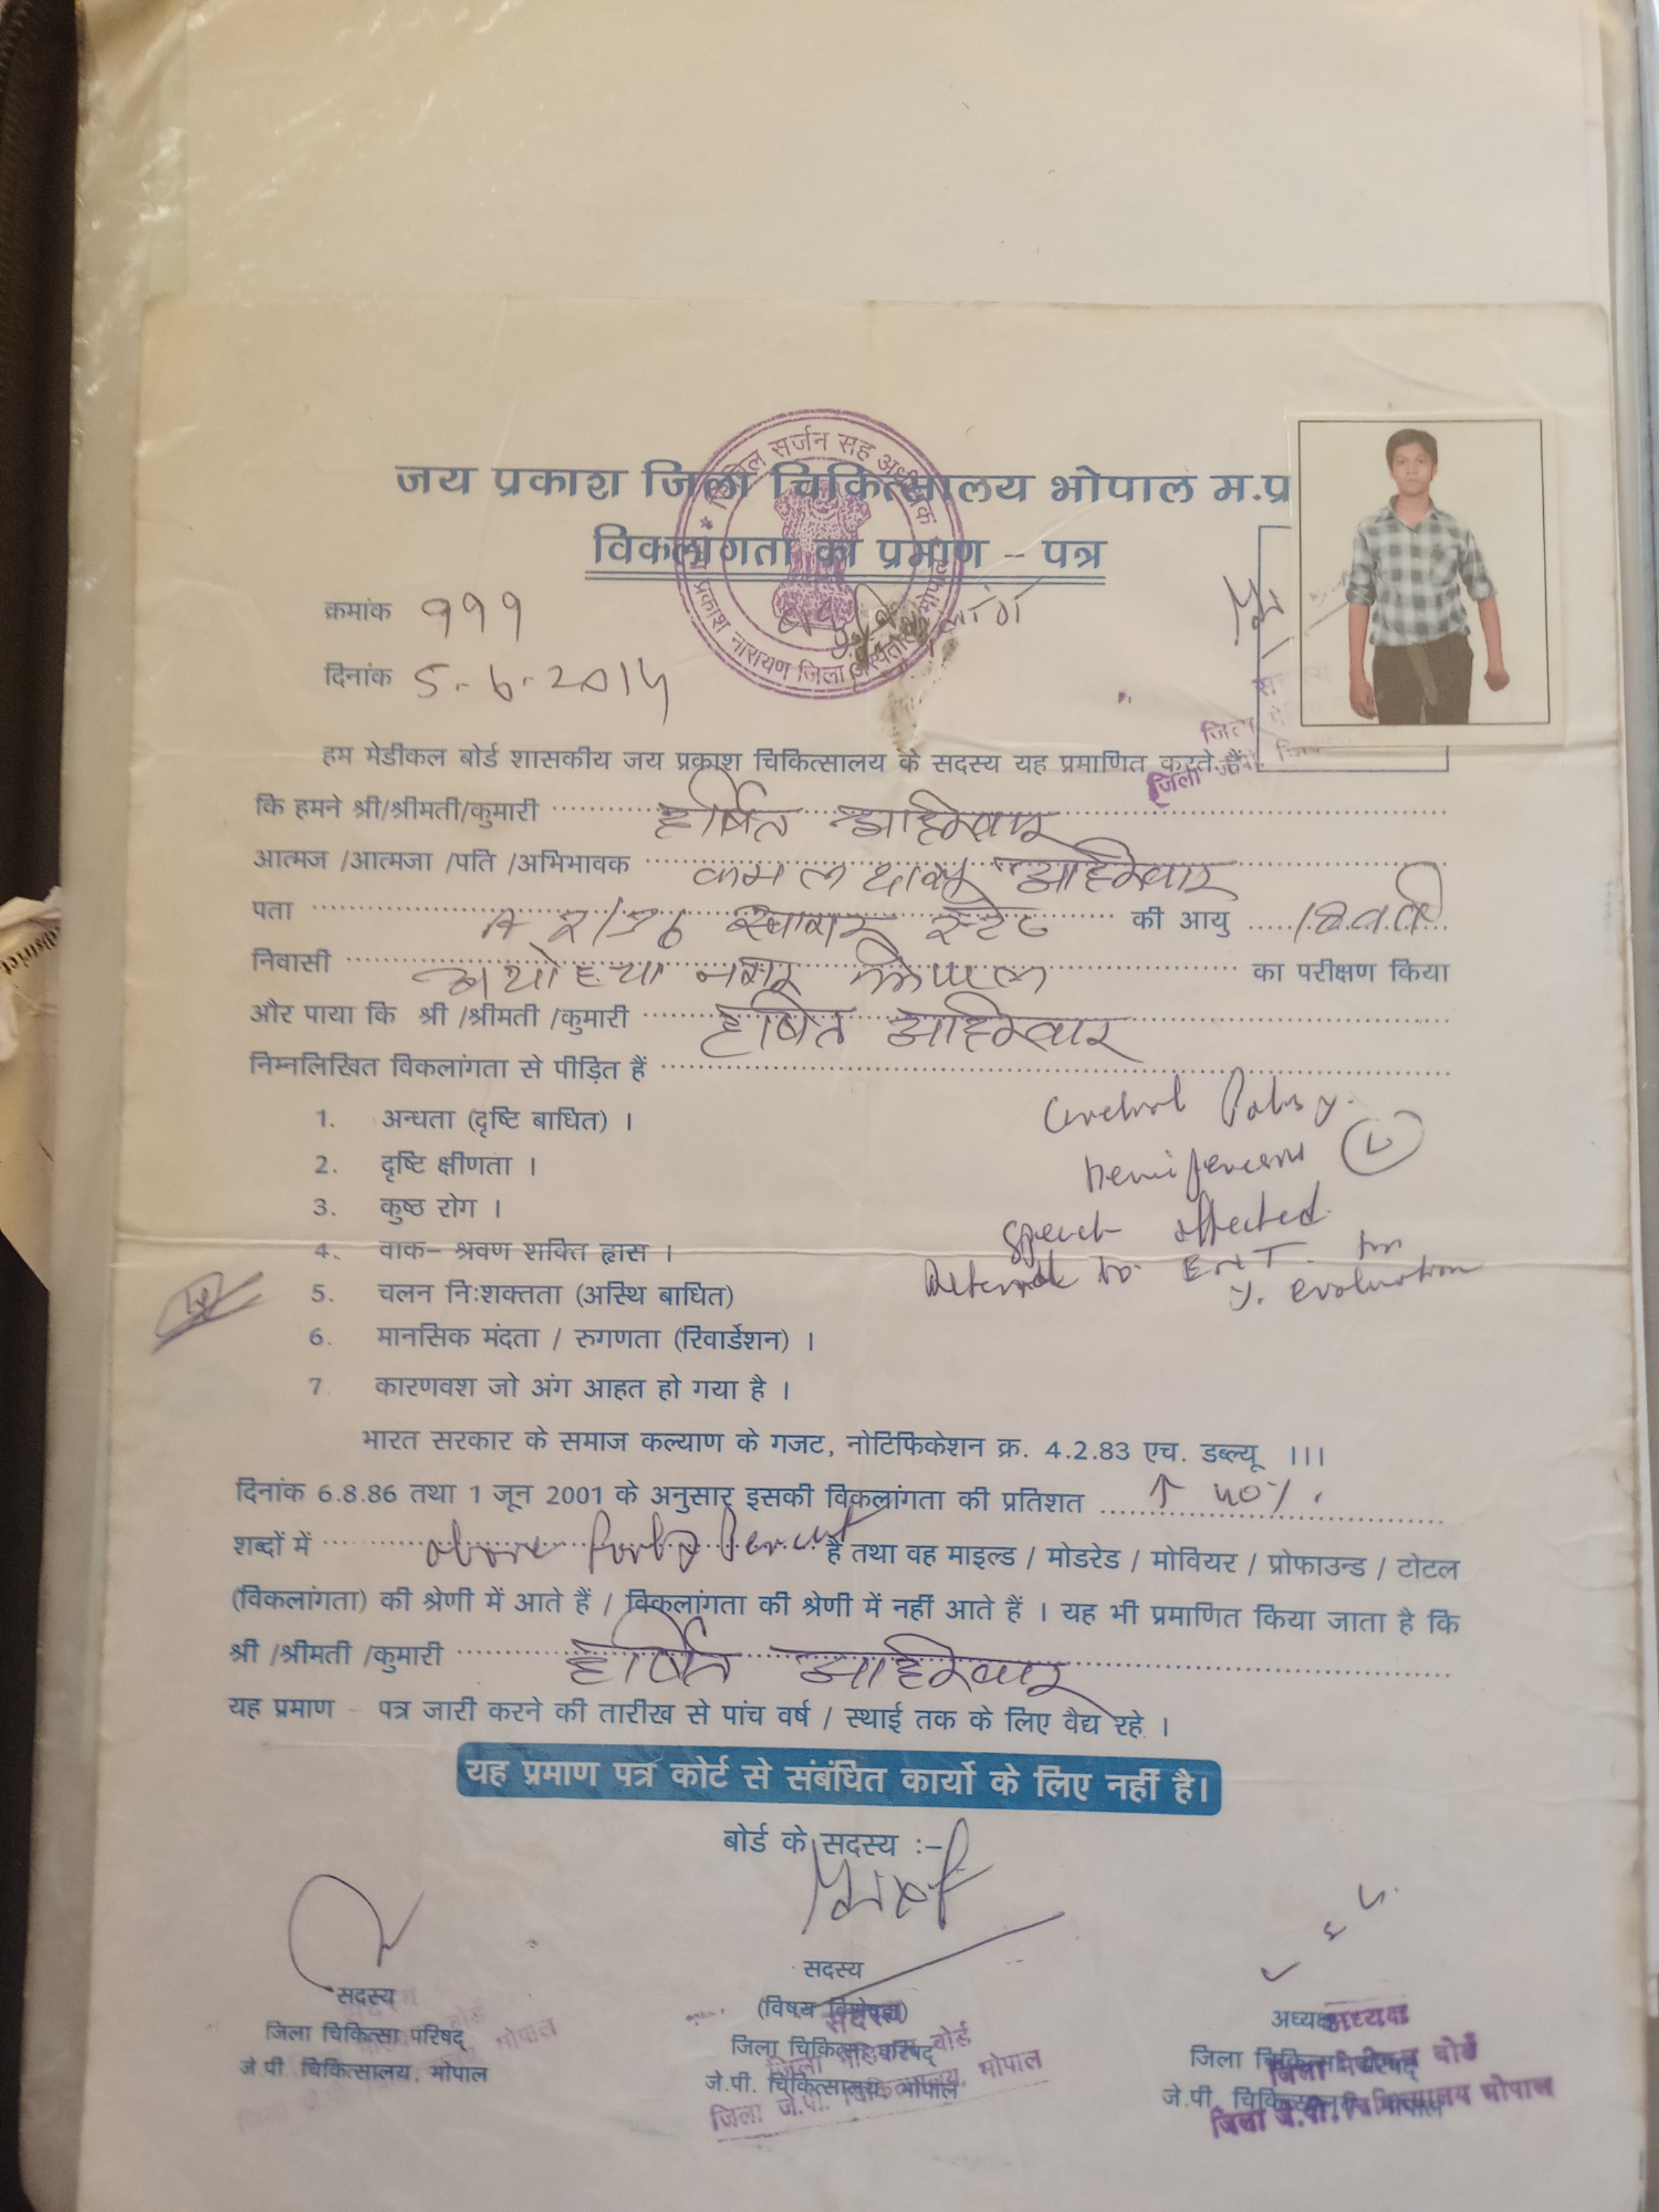 जय प्रकाश जिला चिकित्सालय भोपाल म.प्र
विकलांगता का प्रमाण – पत्र
क्रमांक 999
दिनांक 5-6-2014
हम मेडीकल बोर्ड शासकीय जय प्रकाश चिकित्सालय के सदस्य यह प्रमाणित करते हैं
कि हमने श्री/श्रीमती/कुमारी हर्षित आहिरवार
आत्मज /आत्मजा /पति /अभिभावक कमल आहिरवार
पता स्टेट की आयु 18 वर्ष
निवासी अयोध्या नगर भोपाल का परीक्षण किया
और पाया कि श्री /श्रीमती /कुमारी हर्षित आहिरवार
निम्नलिखित विकलांगता से पीड़ित हैं
1. अन्धता (दृष्टि बाधित) ।
2. दृष्टि क्षीणता ।
3. कुष्ठ रोग ।
4. वाक– श्रवण शक्ति ह्रास ।
5. चलन नि:शक्तता (अस्थि बाधित)
6. मानसिक मंदता / रुगणता (रिवार्डेशन) ।
7. कारणवश जो अंग आहत हो गया है ।
Cerebral Palsy.
Hemiparesis L
Speech affected
to ENT for
evaluation
भारत सरकार के समाज कल्याण के गजट, नोटिफिकेशन क्र. 4.2.83 एच. डब्ल्यू ।।।
दिनांक 6.8.86 तथा 1 जून 2001 के अनुसार इसकी विकलांगता की प्रतिशत ↑ 40%
शब्दों में above forty percent है तथा वह माइल्ड / मोडरेड / मोवियर / प्रोफाउन्ड / टोटल
(विकलांगता) की श्रेणी में आते हैं / विकलांगता की श्रेणी में नहीं आते हैं । यह भी प्रमाणित किया जाता है कि
श्री /श्रीमती /कुमारी हर्षित आहिरवार
यह प्रमाण – पत्र जारी करने की तारीख से पांच वर्ष / स्थाई तक के लिए वैद्य रहे ।
यह प्रमाण पत्र कोर्ट से संबंधित कार्यो के लिए नहीं है।
बोर्ड के सदस्य :–
सदस्य
जिला चिकित्सा परिषद्
जे.पी. चिकित्सालय, भोपाल
सदस्य
(विषय विशेषज्ञ)
जिला चिकित्सा परिषद्
जे.पी. चिकित्सालय, भोपाल
अध्यक्ष
जिला चिकित्सा परिषद्
जे.पी. चिकित्सालय भोपाल